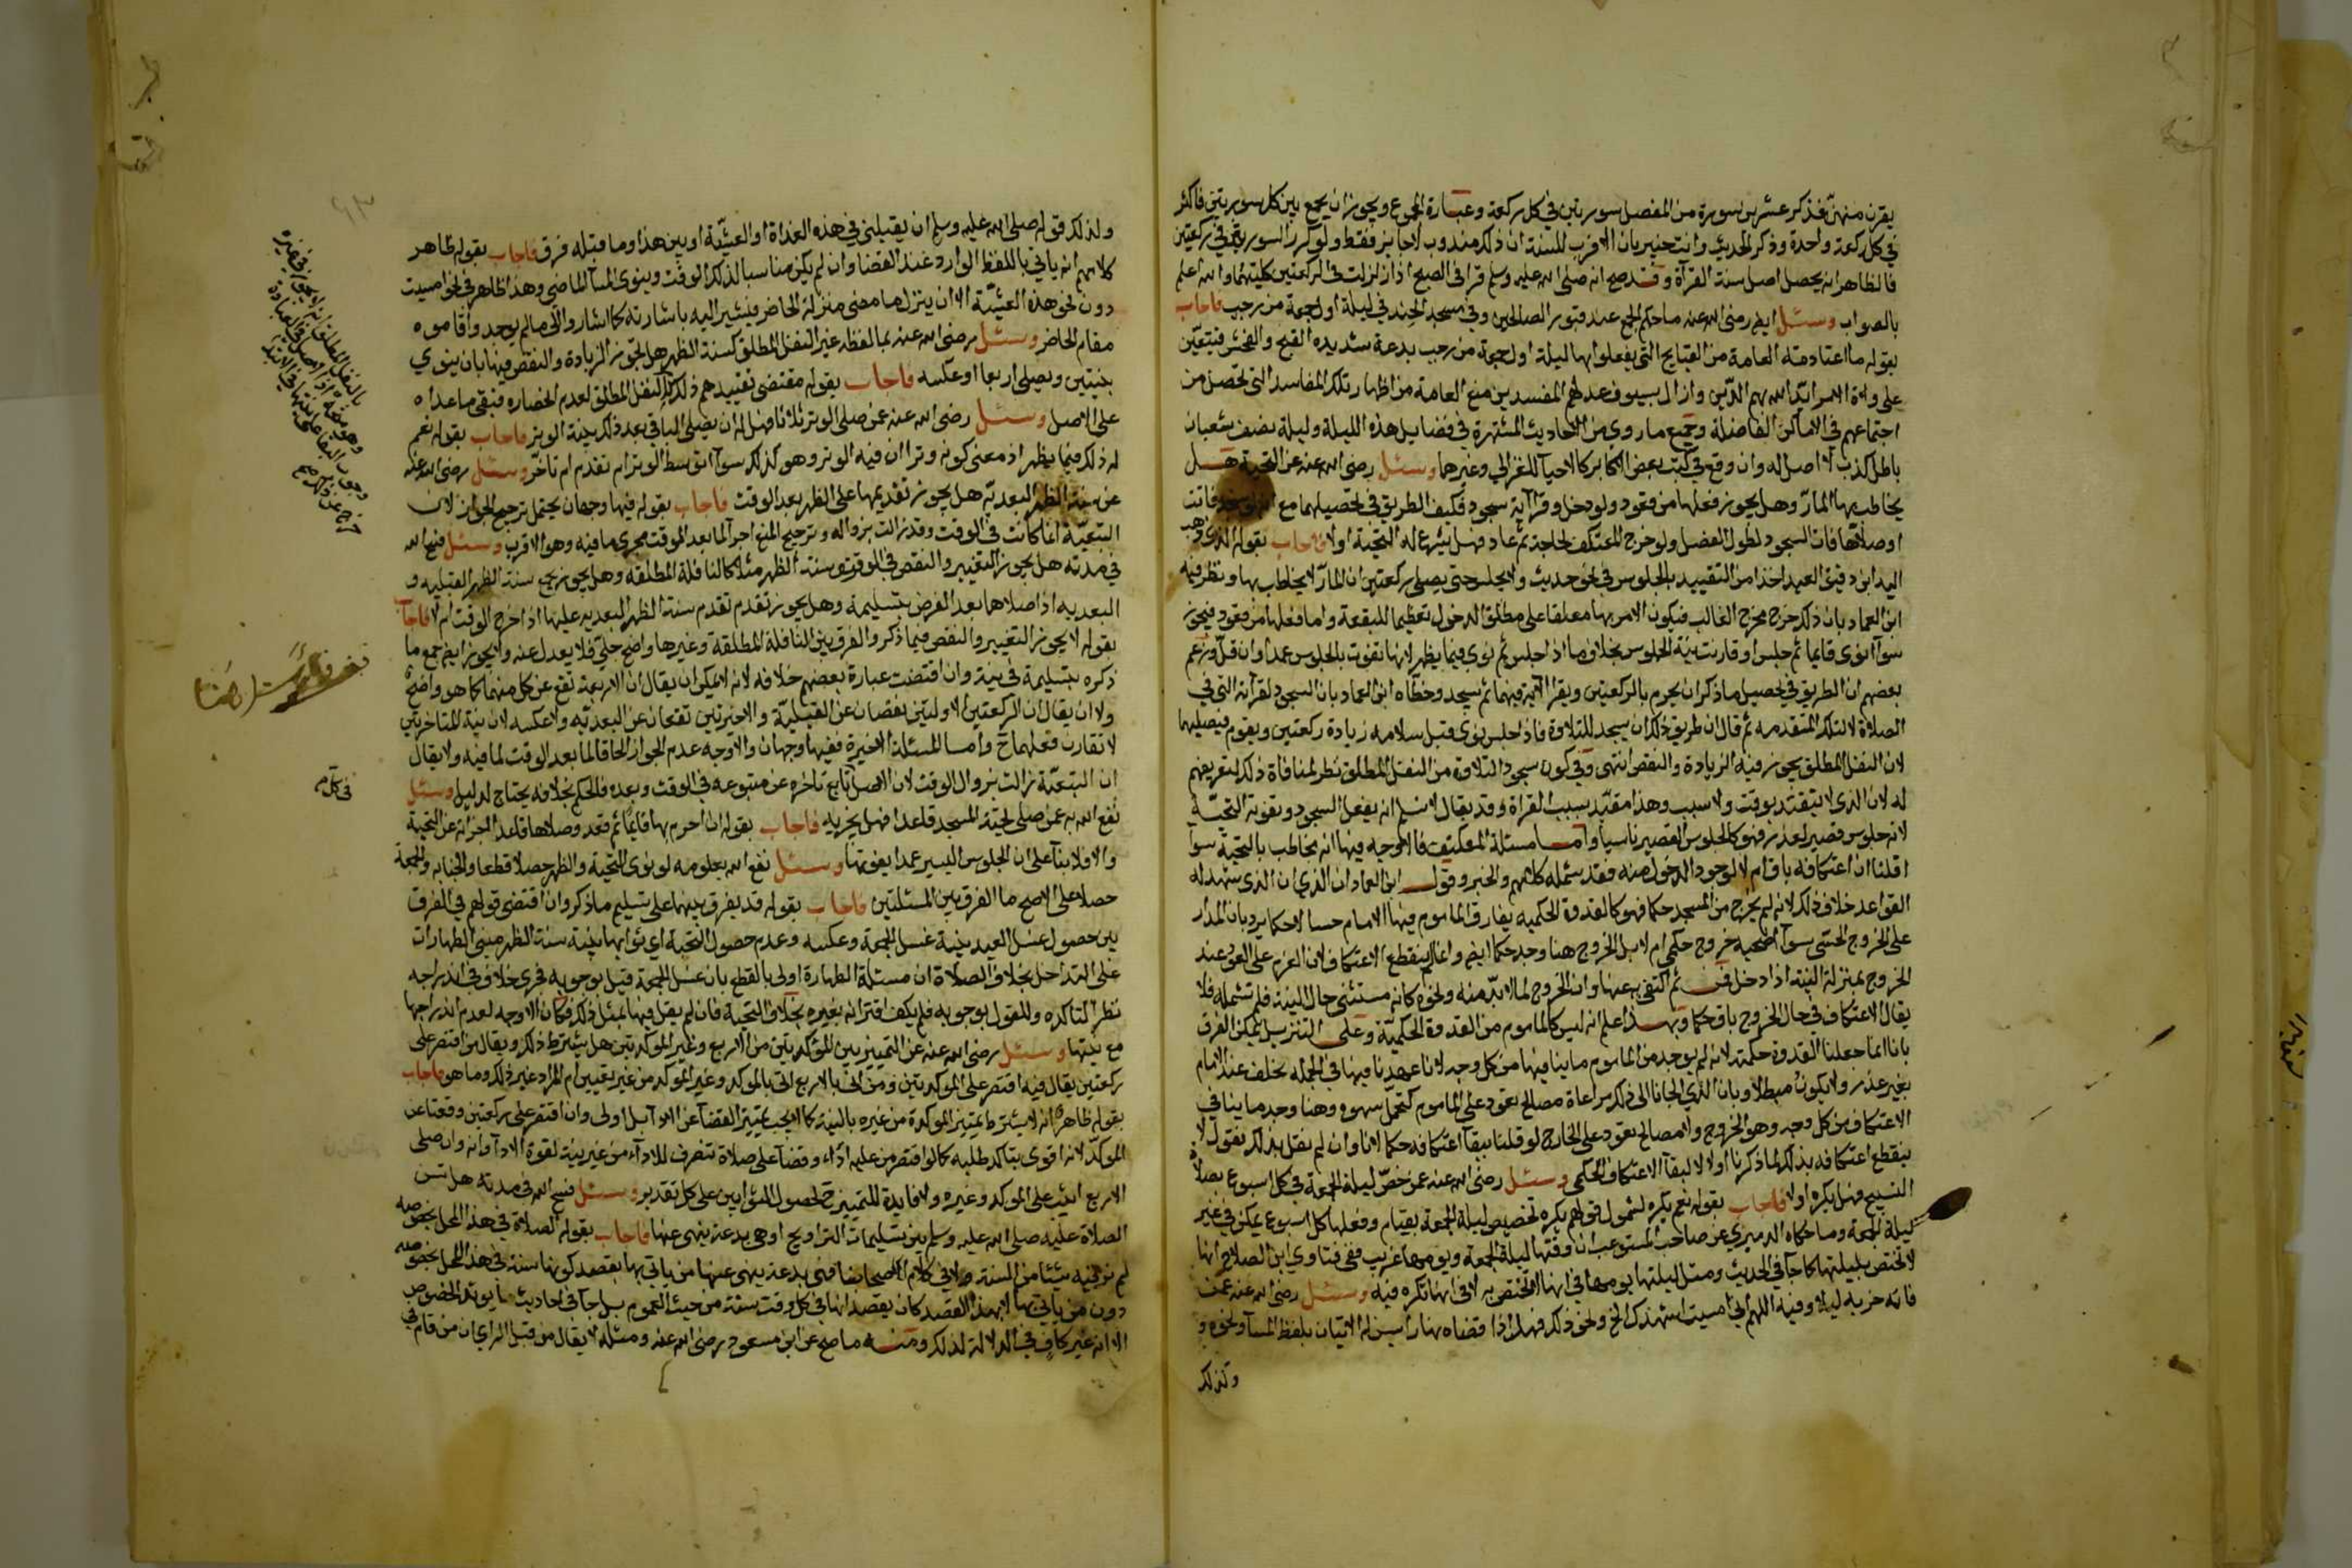 يقرن منهن فذكر عشرين سورة من المفصل سورتين في كل ركعة وعبارة المجموع ويجوز ان يجمع بين كل سورتين فاكثر
في كل ركعة واحدة وذكر الحديث وانت خبير بان الاقرب للسنة ان ذلك مندوب لا جايز فقط ولو كرر السورتين في ركعتين
فالظاهر انه يحصل اصل سنة القرآة وقد صح انه صلى الله عليه وسلم قرا في الصبح اذا زلزلت في الركعتين كليتهما والله اعلم
بالصواب وسئل ايضا رضى الله عنه ما حكم الجمع عند قبور الصالحين وفي مسجد الجند في ليلة اول جمعة من رجب فاجاب
بقوله ما اعتادته العامة من القبايح التي يفعلوها ليلة اول جمعة من رجب بدعة شديدة القبح والفحش فيتعين
على ولاة الامر ايد الله بهم الدين وازال بسيوف عدلهم المفسدين منع العامة من اظهار تلك المفاسد التي تحصل من
اجتماعهم في الاماكن الفاضلة وجميع ما روي من الاحاديث المشتهرة في فضايل هذه الليلة وليلة نصف شعبان
باطل كذب لا اصل له وان وقع في كتب بعض الاكابر كالاحيآ للغزالي وغيرها وسئل رضى الله عنه عن التحية هل
يخاطب بها المار وهل يجوز فعلها من قعود ولو دخل وقرا آية سجود فكيف الطريق في تحصيلهما مع انه لو سجد فاتت
او صلاها فات السجود لطول الفصل ولو خرج المعتكف لحاجة ثم عاد فهل يشرع له التحية اولا فاجاب بقوله الذي ذهب
اليه ابن دقيق العيد اخذا من التقييد بالجلوس في نحو حديث ولا يجلس حتى يصلي ركعتين ان المار لا يخاطب بها ونظر فيه
ابن العماد بان ذلك خرج مخرج الغالب فيكون الامر بها معلقا على مطلق الدخول تعظيما للبقعة واما فعلها من قعود فيجوز
سوآ انوى قايما ثم جلس او قارنت نية الجلوس بخلاف ما اذا جلس ثم نوى فيما يظهر لانها تفوت بالجلوس عمدا وان قل وزعم
بعضهم ان الطريق في تحصيل ما ذكر ان يحرم بالركعتين ويقرا الاية فيهما ثم يسجد وخطاه ابن العماد بان السجود لقرآته التي في
الصلاة لا لتلك المتقدمه ثم قال ان طريق ذلك ان يسجد للتلاوة فاذا جلس نوى قبل سلامه زيادة ركعتين ويقوم فيصليهما
لان النفل المطلق يجوز فيه الزيادة والنقص انتهى وفي كون سجود التلاوة من النفل المطلق نظر لمنافاة ذلك لتعريفهم
له لان الذي لا يتقيد بوقت ولا سبب وهذا مقيد بسبب القراة وقد يقال لانسلم انه يفعل السجود وتفوته التحية
لانه جلوس قصير لعذر فهو كالجلوس القصير ناسيا واما مسئلة المعتكف فالاوجه فيها انه يخاطب بالتحية سوآ
اقلنا ان اعتكافه باق ام لا لوجود الدخول منه فقد شمله كلامهم والخبر وقول ابن العماد ان الذي تشهد له
القواعد خلاف ذلك لانه لم يخرج من المسجد حكما فهو كالقدوة الحكمية يفارق الماموم فيها الامام حسا لا حكما يرد بان المدار
على الخروج الحسي سوآ اصحبه خروج حكمي ام لا بل الخروج هنا وجد حكما ايضا وانما لم ينقطع الاعتكاف لان العزم على العود عند
الخروج بمنزلة النية اذا دخل ثم اكتفي به عنها وان الخروج لما لا بد منه ولنحوه كانه مستثنى حال النية فلم تشمله فلا
يقال الاعتكاف في حال الخروج باق حكما وبهذا اعلم انه ليس كالماموم من القدوة الحكمية وعلى التنزل يمكن الفرق
بانا انما جعلنا القدوة حكمية لانه لم يوجد من الماموم ما ينافيها من كل وجه لانا عهدنا فيها في الجملة تخلف عن الامام
بغير عذر ولا يكون مبطلا وبان الذي الجانا الى ذلك مراعاة مصالح تعود على الماموم كتحمل سهوه وهنا وجد ما ينافي
الاعتكاف من كل وجه وهو الخروج ولا مصالح تعود على الخارج لو قلنا ببقآ اعتكافه حكما لانا وان لم نقل بذلك نقول لا
ينقطع اعتكافه بذلك لما ذكرنا اولا لا لبقآ الاعتكاف الحكمي وسئل رضى الله عنه عن خص ليلة الجمعة في كل اسبوع بصلاة
التسبيح فهل يكره اولا فاجاب بقوله نعم يكره لشمول قولهم يكره تخصيص ليلة الجمعة بقيام وفعلها كل اسبوع يمكن في غير
ليلة الجمعة وما حكاه الدميري عن صاحب المستوعب ان وقتها ليلة الجمعة ويومها غريب ففي فتاوي ابن الصلاح انها
لا تختص بليلتها كما جآ في الحديث ومثل ليلتها يومها في انها لا تختص به لا في انها تكره فيه وسئل رضى الله عنه عمن
فاته حزبه ليلا وفيه اللهم اني امسيت اشهدك الخ ونحو ذلك فهل اذا قضاه نهارا يسن له الاتيان بلفظ المسآ ونحوه و
ولذلك
ولذلك قوله صلى الله عليه وسلم ان يقيلني في هذه الغداة او العشية او بين هذا وما قبله فرق فاجاب بقوله ظاهر
كلامهم انه ياتي باللفظ الوارد عند القضا وان لم يكن مناسبا لذلك الوقت وينوي المسآ الماضي وهذا ظاهر في نحو امسيت
دون نحو هذه العشية الا ان ينزل ما مضى منزلة الحاضر فيشير اليه باشارته كما اشاروا الى ما لم يوجد واقاموه
مقام الحاضر وسئل رضى الله عنه بما لفظه غير النفل المطلق كسنة الظهر هل تجوز الزيادة والنقص فيها بان ينوي
بنيتين ويصلى اربعا او عكسه فاجاب بقوله مقتضى تقييدهم ذلك بالنفل المطلق لعدم انحصاره فيبقى ما عداه
على الاصل وسئل رضى الله عنه عمن صلى الوتر ثلاثا فهل له ان يصلى الباقي بعد ذلك بنية الوتر فاجاب بقوله نعم
له ذلك فيما يظهر اذ معنى كونه وترا ان فيه الوتر وهو كذلك سوآ اتوسط الوتر ام تقدم ام تاخر وسئل رضى الله عنه
عن سنة الظهر البعدية هل يجوز تقديمها على الظهر بعد الوقت فاجاب بقوله فيها وجهان يحتمل ترجيح الجواز لان
التبعية انما كانت في الوقت وقد زالت بزواله وترجيح المنع اجرآ لما بعد الوقت مجرى ما فيه وهو الاقرب وسئل فسح الله
في مدته هل يجوز التغيير والنقص في الوقوتة سنة الظهر مثلا كالنافلة المطلقة وهل يجوز جمع سنة الظهر القبلية و
البعدية اذا صلاها بعد الفرض بتسليمة وهل يجوز تقدم سنة الظهر البعدية عليها اذا خرج الوقت ام لا فاجاب
بقوله لا يجوز التغيير والنقص فيما ذكر والفرق بين النافلة المطلقة وغيرها واضح جلي فلا يعدل عنه ولا يجوز ايضا جمع ما
ذكره بتسليمة في نية وان اقتضت عبارة بعضهم خلافه لانه لا يمكن ان يقال ان الاربعة تقع عن كل منهما كما هو واضح
ولا ان يقال ان الركعتين الاوليتين يقعان عن القبلية والاخيرتين تقعان عن البعدية ولا عكسه لان نية المتاخرتين
لا تقارن فعلهما ح واما المسئلة الاخيرة ففيها وجهان والاوجه عدم الجواز الحاقا لما بعد الوقت لما فيه ولا يقال
ان التبعية زالت بزوال الوقت لان الاصل تابع تاخره عن متبوعه في الوقت وبعده فالحكم بخلافه يحتاج لدليل وسئل
نفع الله به عمن صلى تحية المسجد قاعدا فهل يجزيه فاجاب بقوله ان احرم بها قايما ثم قعد وصلاها قاعدا اجزاته عن التحية
والا فلا بنآ على ان الجلوس اليسير عمدا يفوتها وسئل نفع الله بعلومه لو نوى التحية والظهر حصلا قطعا والجنابة والجمعة
حصلا على الاصح ما الفرق بين المسئلتين فاجاب بقوله قد يفرق بينهما على تسليم ما ذكر وان اقتضى قولهم في الفرق
بين حصول غسل العيد بنية غسل الجمعة وعكسه وعدم حصول التحية اي ثوابها بنية سنة الظهر مبنى الطهارات
على التداخل بخلاف الصلاة ان مسئلة الطهارة اولى بالقطع بان غسل الجمعة قيل بوجوبه فجرى خلاف في اندراجه
نظرا لتاكده وللقول بوجوبه فلم يكف اقترانه بغيره بخلاف التحية فانه لم يقل فيها بمثل ذلك فكان الاوجه لعدم اندراجها
مع نيتها وسئل رضى الله عنه عن التمييز بين المؤكدتين من الاربع وغير المؤكدتين هل يشترط ذلك ويقال من اقتصر على
ركعتين يقال فيه اقتصر على المؤكدتين ومن اتى بالاربع اتى بالموكد وغير الموكد من غير تعيين ام المراد غير ذلك وما هو فاجاب
بقوله ظاهره انه لا يشترط تمييز الموكدة من غيره بالنية كما لا يجب تمييز القضآ عن الادآ بل اولى وان اقتصر على ركعتين وقعتا عن
الموكد لانه اقوى بتاكد طلبه كما لو اقتصر من عليه ادآء وقضآ على صلاة تنصرف للادآء من غير نية لقوة الادآ وانه وان صلى
الاربع اثيب على الموكد وغيره ولا فايدة للتمييز ح لحصول الثوابين على كل تقدير وسئل فسح الله في مدته هل تسن
الصلاة عليه صلى الله عليه وسلم بين تسليمات التراويح او هي بدعة ينهى عنها فاجاب بقوله الصلاة في هذا المحل بخصوصه
لم نر فيه شيئا من السنة ولا في كلام اصحابنا فهي بدعة ينهى عنها من ياتي بها بقصد كونها سنة في هذا المحل بخصوصه
دون من ياتي بها لا بهذا القصد كان يقصد انها في كل وقت سنة من حيث العموم بل جآ في احاديث ما يويد الخصوص
الا انه غير كاف في الدلالة لذلك ومنه ما صح عن ابن مسعود رضى الله عنه ومثله لا يقال من قبل الراي ان من قام في